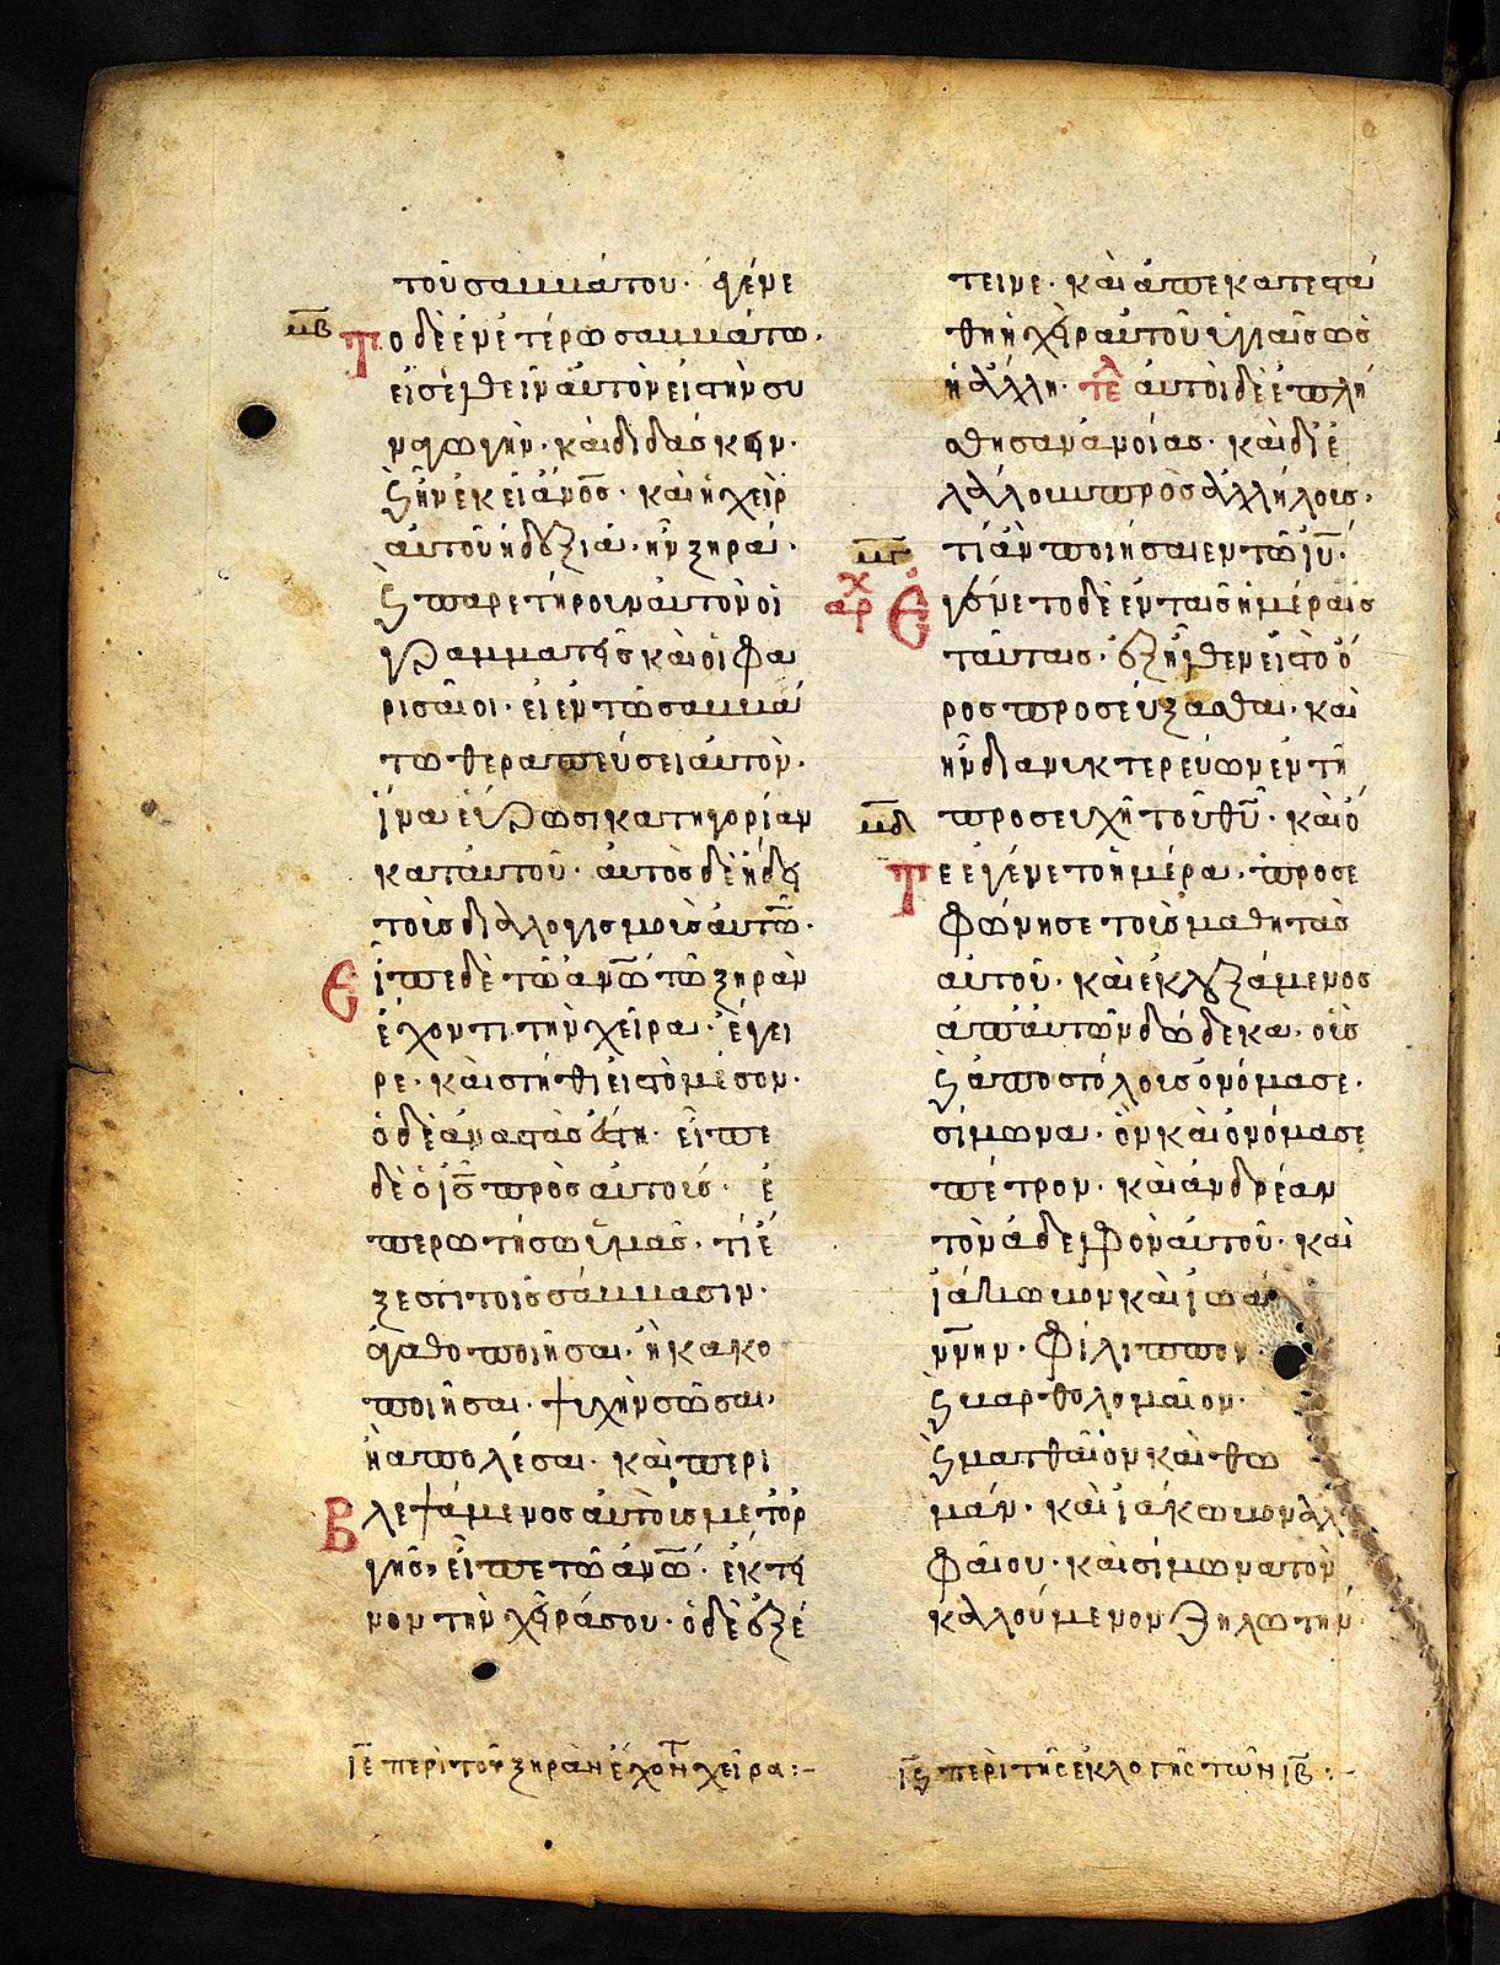 τοῦ σαββάτου· ἐγένε
μβ
το δὲ ἐν ἑτέρω σαββάτω·
εἰσελθεῖν αὐτὸν εἰς τὴν συ
ναγωγὴν· καὶ διδάσκειν·
ϗ ἦν ἐκεῖ ἄνο̅σ· καὶ ἡ χεὶρ
αὐτοῦ ἡ δεξιὰ· ἦν ξηρά·
ϗ παρετήρουν αὐτὸν οἱ
γραμματεῖς καὶ οἱ φα
ρισαῖοι· εἰ ἐν τῶ σαββά
τω θεραπεύσει αὐτὸν·
ἵνα εὕρωσι κατηγορίαν
κατ αὐτοῦ· αὐτὸς δὲ ἤδει
τοὺς διαλογισμοὺς αὐτῶ̅·
Εἶπε δὲ τῶ ἀνω̅ τῶ ξηρὰν
ἔχοντι τὴν χεῖρα· ἔγει
ρε· καὶ στῆθι εἰς τὸ μέσον·
ὁ δὲ ἀναστὰς ἔστη· εἶπε
δὲ ὁ ις̅ πρὸς αὐτούς· ἐ
περωτήσω ὑμᾶς· τί ἔ
ξεστι τοῖς σάββασιν·
ἀγαθοποιῆσαι· ἢ κακο
ποιῆσαι· ψυχὴν σῶσαι,
ἢ ἀπολέσαι· καὶ περι
βλεψάμενος αὐτοὺς μετ ὀρ
γῆς, εἶπε τῶ ἀνω̅· ἔκτει
νον τὴν χεῖρά σου· ὁ δὲ ἐξέ
ιε̅ περὶ τοῦ ξηρὰν ἔχοντ χεῖρα:-
τεινε· καὶ ἀπεκατεστά
θη ἡ χεὶρ αὐτοῦ ὑγιαὴς ὡς
ἡ ἄλλη· τελ αὐτοὶ δὲ ἐπλή
σθησαν ἀνοίας· καὶ διε
λάλουν πρὸς ἀλλήλους·
μγ
τί ἂν ποιήσαιεν τῶ ιυ̅·
αρχ Ἐγένετο δὲ ἐν ταῖς ἡμέραις
ταύταις· ἐξῆλθεν εἰς τὸ ὄ
ρος προσεύξασθαι· καὶ
ἦν διανυκτερεύων ἐν τῆ
μδ
προσευχῆ τοῦ θυ̅· καὶ ὅ
τε ἐγένετο ἡμέρα· προσε
φώνησε τοὺς μαθητὰς
αὐτοῦ· καὶ ἐκλεξάμενος
ἀπ αὐτῶν δώδεκα· οὓς
ϗ ἀποστόλους ὀνόμασε·
σίμωνα· ὃν καὶ ὀνόμασε
πέτρον· καὶ ἀνδρέαν
τὸν ἀδελφὸν αὐτοῦ· καὶ
ἰάκωβον καὶ ἰωά
ννην· φίλιππον
ϗ βαρθολομαῖον·
ϗ ματθαῖον καὶ θω
μάν· καὶ ἰάκωβον ἀλ
φαίου· καὶ σίμωνα τὸν
καλούμενον ζηλωτήν·
ις̅ περὶ τῆς ἐκλογῆς τῶν ιβ̅:-